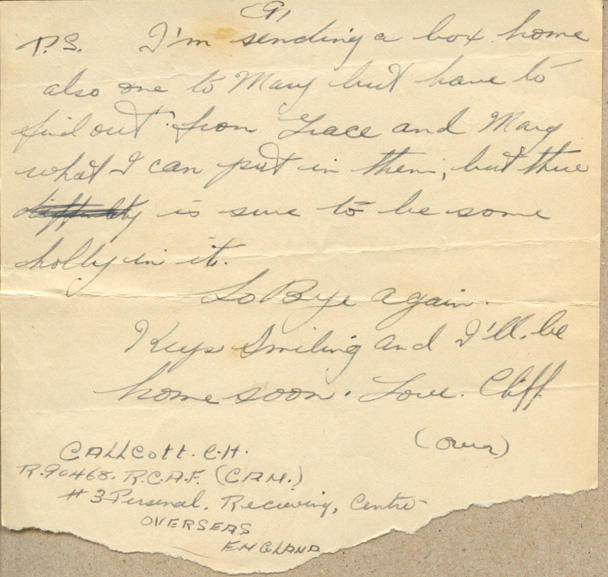 (9)
P.S. I'm sending a box home
also one to Mary but have to
find out from Grace and Mary
what I can put in them, but there
is sure to be some
holly in it.
So Bye again.
Keep Smiling and I'll be
home soon. Love. Cliff
(over)
CALLCOTT. C.H.
R.90468. R.C.A.F. (CAN.)
#3 Personal. Recieving, Centre
OVERSEAS
ENGLAND